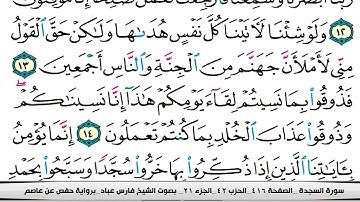 رَبَّنَآ أَبْصَرْنَا وَسَمِعْنَا فَٱرْجِعْنَا نَعْمَلْ صَٰلِحًا إِنَّا مُوقِنُونَ
١٢ وَلَوْ شِئْنَا لَأٓتَيْنَا كُلَّ نَفْسٍ هُدَىٰهَا وَلَٰكِنْ حَقَّ ٱلْقَوْلُ
مِنِّى لَأَمْلَأَنَّ جَهَنَّمَ مِنَ ٱلْجِنَّةِ وَٱلنَّاسِ أَجْمَعِينَ ١٣
فَذُوقُوا۟ بِمَا نَسِيتُمْ لِقَآءَ يَوْمِكُمْ هَٰذَآ إِنَّا نَسِينَٰكُمْ ۖ
وَذُوقُوا۟ عَذَابَ ٱلْخُلْدِ بِمَا كُنتُمْ تَعْمَلُونَ ١٤ إِنَّمَا يُؤْمِنُ
بِـَٔايَٰتِنَا ٱلَّذِينَ إِذَا ذُكِّرُوا۟ بِهَا خَرُّوا۟ سُجَّدًا وَسَبَّحُوا۟ بِحَمْدِ
سورة السجدة _الصفحة ٤١٦_الحزب ٤٢_الجزء ٢١ _ بصوت الشيخ فارس عباد_برواية حفص عن عاصم